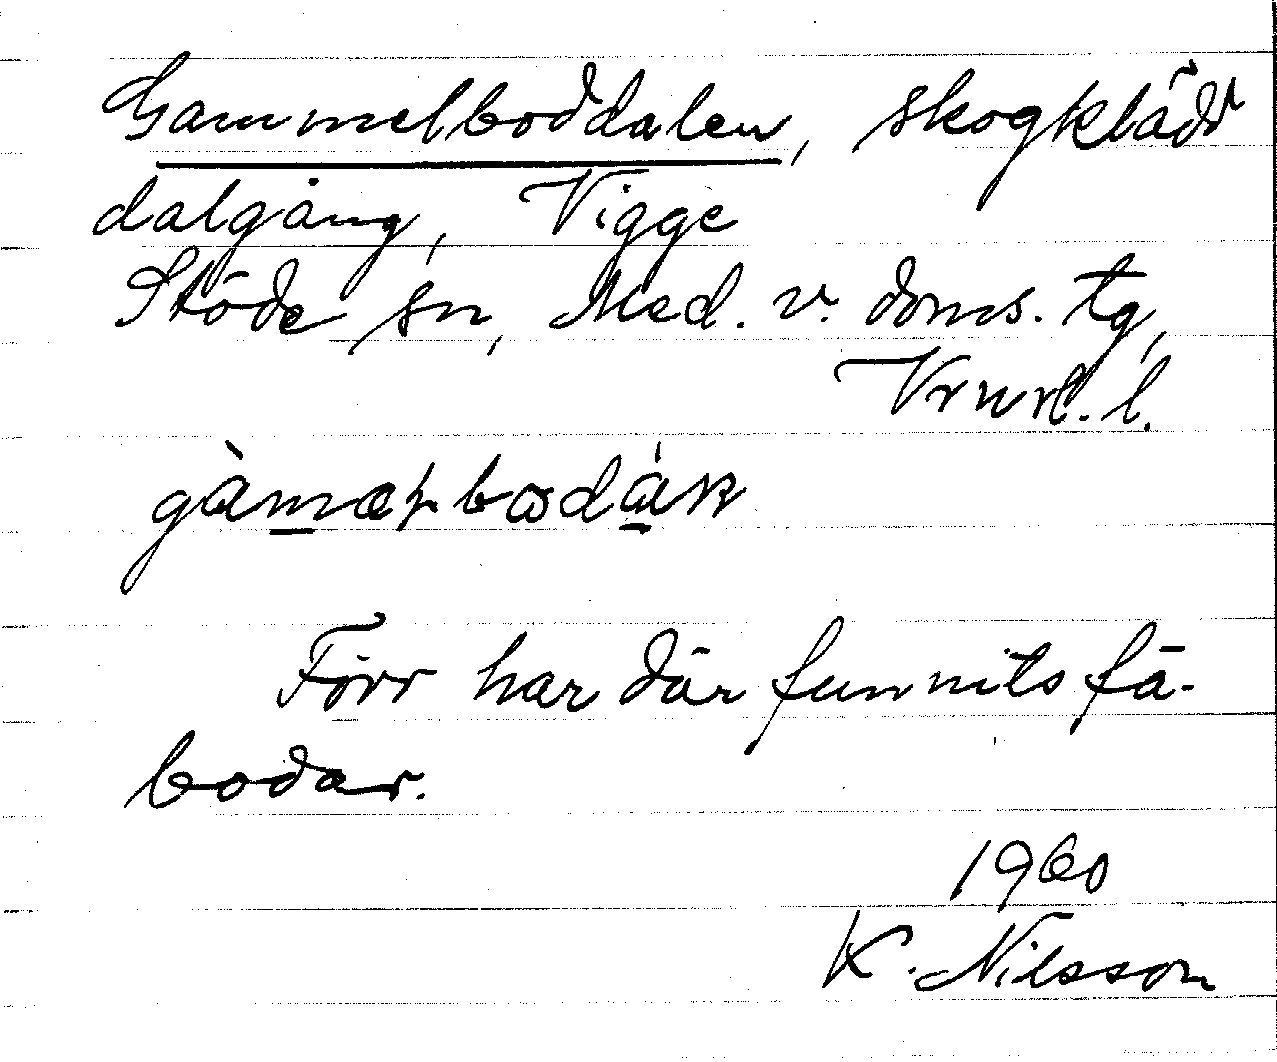 Gammelboddalen, skogklädd
dalgång, Vigge
Stöde sn, Med. v. doms. tg,
Vrnrl. l.
Förr har där funnits fä-
bodar.
1960
K. Nilsson